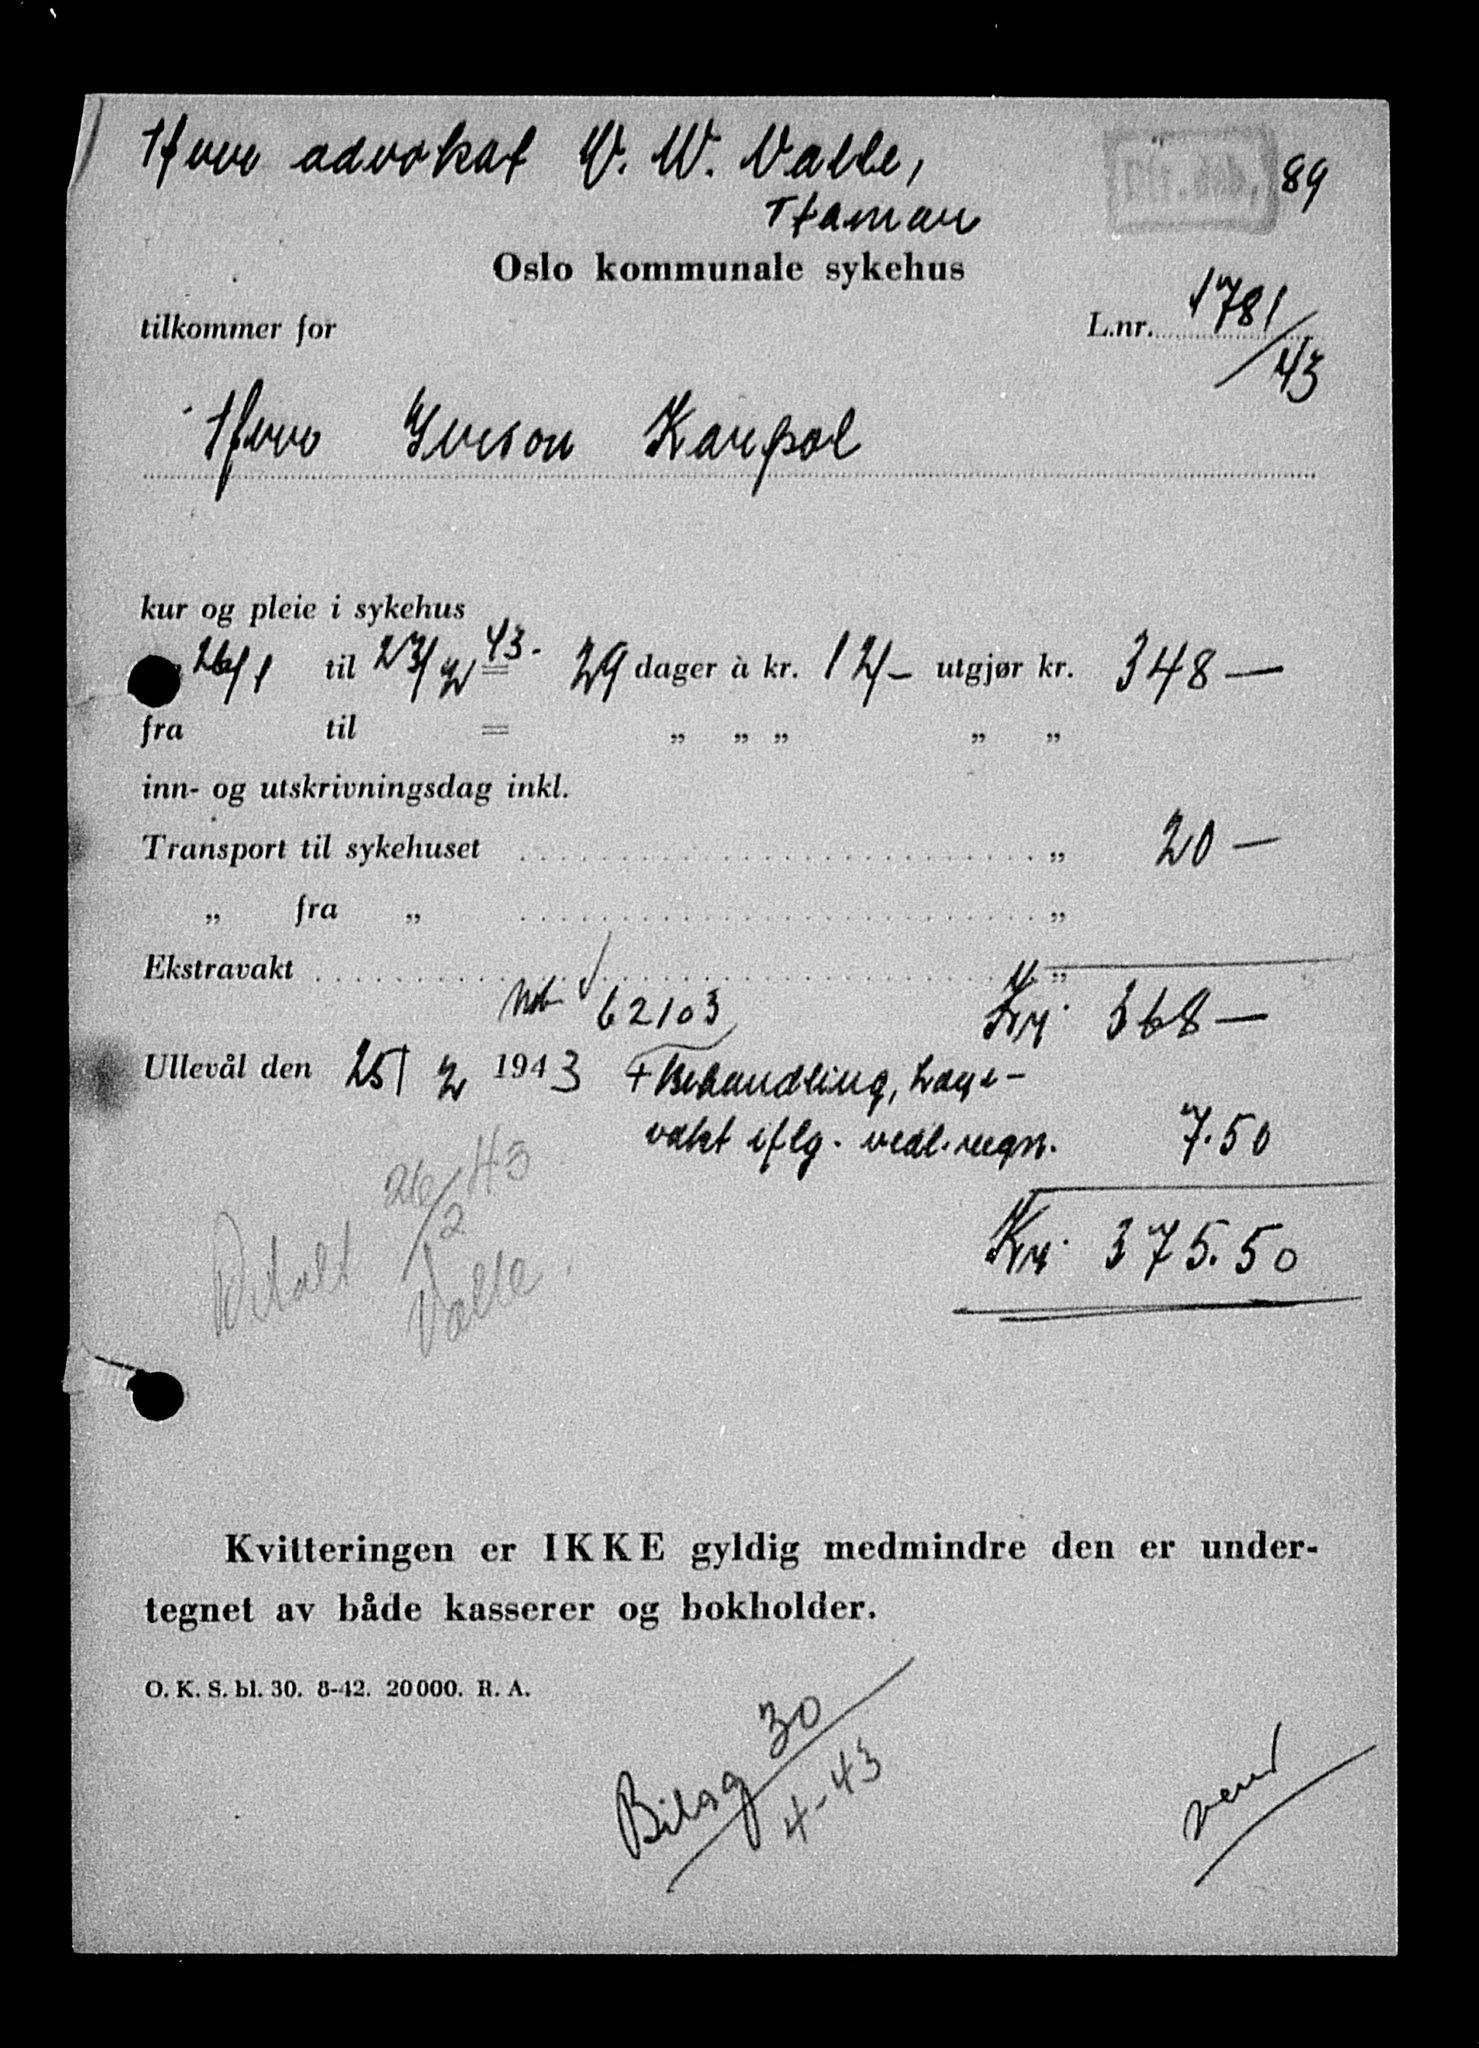 Herr advokat V. W. Valle,
Hamar
89
Oslo kommunale sykehus
tilkommer for
L.nr. 1781/43
Herr Gerson Karpol
kur og pleie i sykehus
26/1 til 23/2 43. = 29 dager à kr. 12,- utgjør kr. 348 —
fra til = „ „ „ „ „
inn- og utskrivningsdag inkl.
Transport til sykehuset „ 20 —
„ fra „ „
Ekstravakt „
62103 Kr. 368 —
Ullevål den 25/2 1943 + Behandling, Læge-
vakt iflg. vedl. regn. 7.50
Kr. 375.50
Betalt 26/2 43
Valle.
Kvitteringen er IKKE gyldig medmindre den er under-
tegnet av både kasserer og bokholder.
O. K. S. bl. 30. 8-42. 20 000. R. A.
Bilag 30
4-43
vend